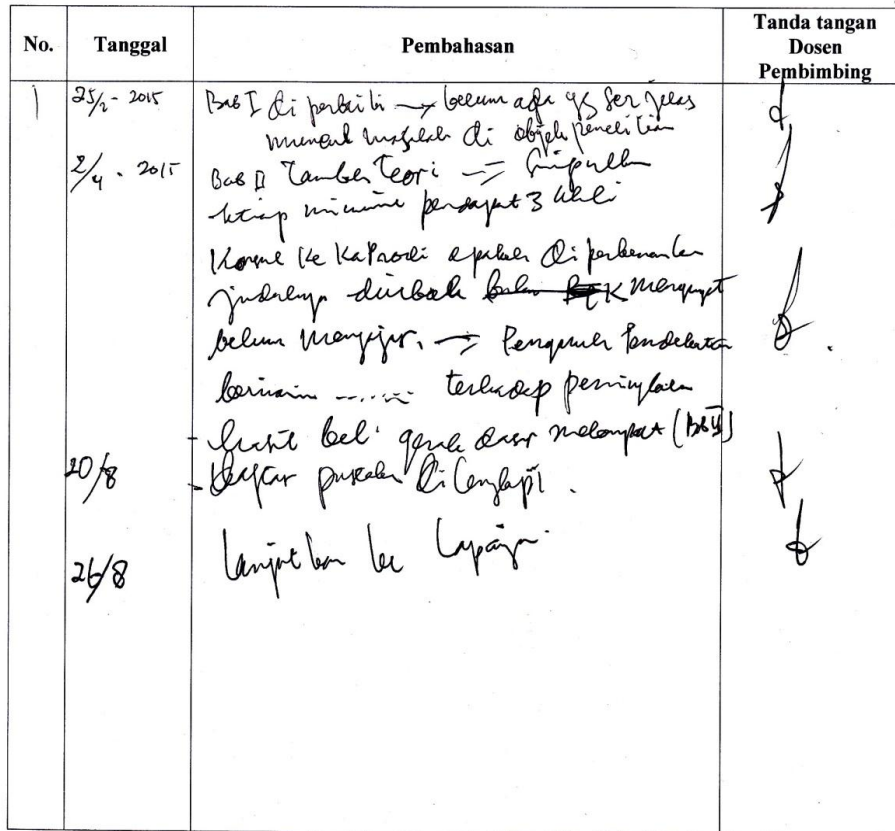 No. Tanggal Pembahasan Tanda tangan Dosen Pembimbing
1 25/2 - 2015 Bab I diperbaiki → belum ada yg secara jelas
muncul masalah di objek penelitian
2/4 - 2015 Bab II Tambah Teori →
setiap minimal pendapat 3 ahli
Konsul ke KaProdi apakah diperbenarkan
judulnya dirubah mengingat
belum mengajar. → Pengaruh Pendekatan
bermain ........ terhadap peningkatan
- hasil bel. gerak dasar melompat (Bab II)
20/8 - Daftar pustaka dilengkapi.
26/8 lanjutkan ke lapangan